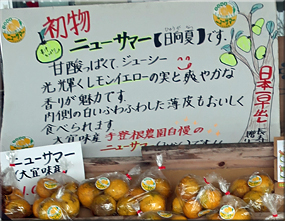 初物
ニューサマー【日向夏】です。
甘酸っぱくて、ジューシー
光輝くレモンイエローの実と爽やかな
香りが魅力です。
内側の白いふわふわした薄皮もおいしく
食べられます。
大宜味産
農園自慢の
ニューサマー
日本一早出し
ニューサマー
(大宜味産)